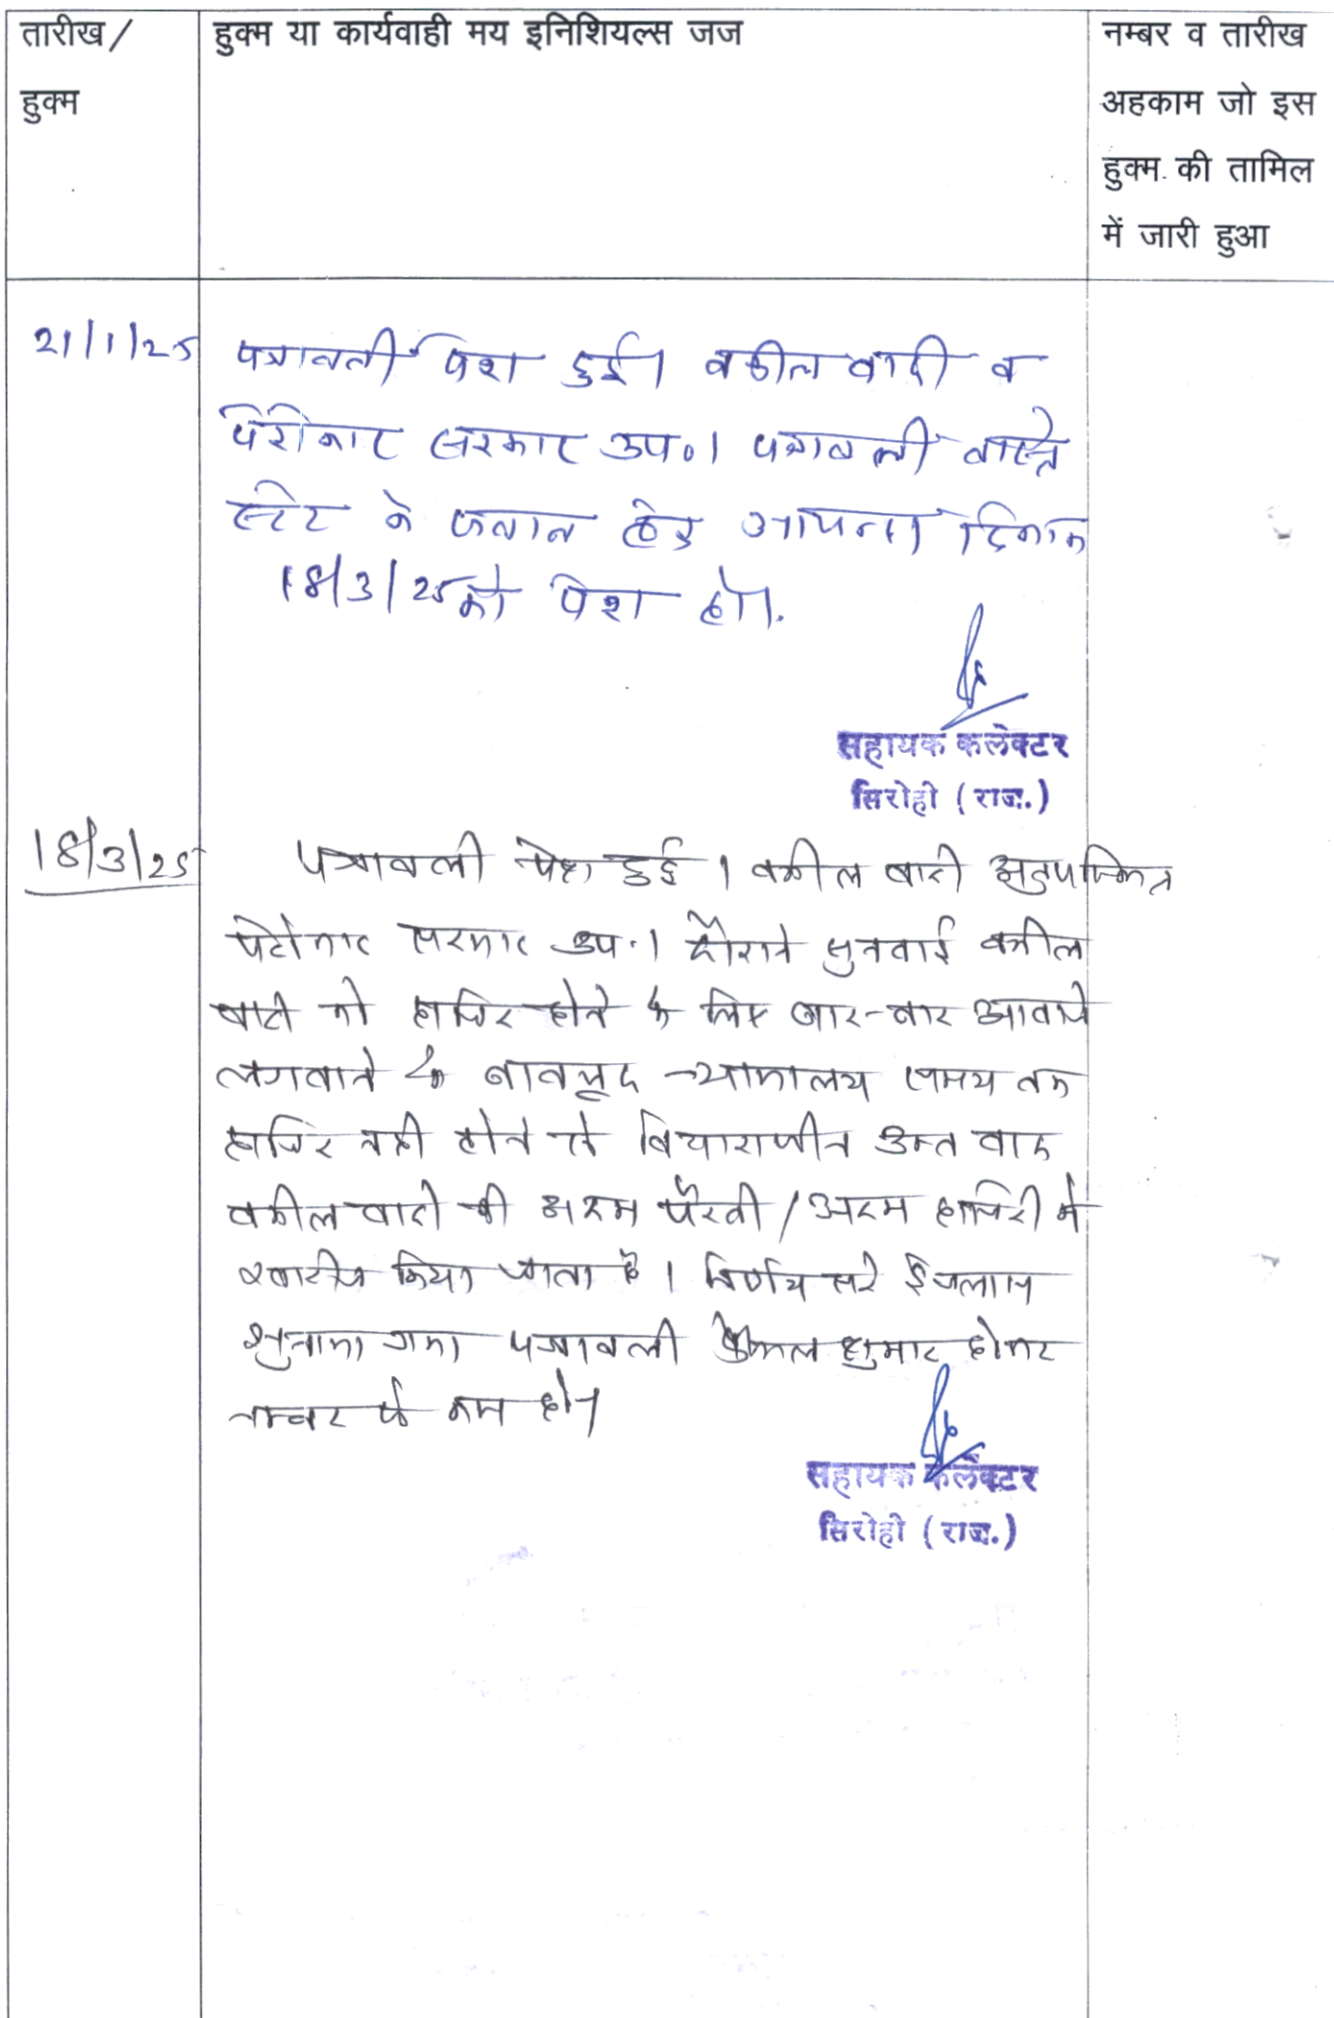 तारीख/
हुक्म
हुक्म या कार्यवाही मय इनिशियल्स जज
नम्बर व तारीख
अहकाम जो इस
हुक्म की तामिल
में जारी हुआ
21/1/25
पत्रावली पेश हुई। वकील वादी व
पेरोकार सरकार उप०। पत्रावली वास्ते
स्टेट के जवाब हेतु आयन्दा दिनांक
18/3/25 को पेश हो।
सहायक कलेक्टर
सिरोही (राज.)
18/3/25
पत्रावली पेश हुई। वकील वादी अनुपस्थित
पेरोकार सरकार उप.। दौराने सुनवाई वकील
वादी को हाजिर होने के लिए बार-बार आवाजे
लगवाने के बावजूद न्यायालय समय तक
हाजिर नही होने से विचाराधीन वाद
वकील वादी की अदम पैरवी/अदम हाजिरी मे
खारीज किया जाता है। निर्णय सरे ईजलास
सुनाया गया पत्रावली फैसल शुमार होकर
नम्बर से कम हो।
सहायक कलेक्टर
सिरोही (राज.)